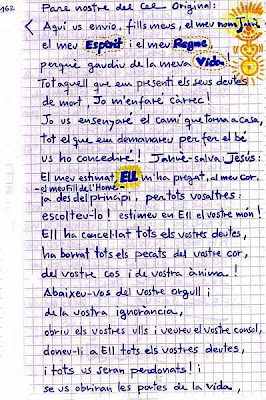 162
Pare nostre del Cel Original:
Aquí us envio, fills meus, el meu nom Jahvè
el meu Esperit i el meu Regne
perquè gaudiu de la meva Vida
Tot aquell que em presenti els seus deutes
de mort, Jo m'enfaré càrrec!
Jo us ensenyaré el camí que torna a casa,
tot el que em demanareu per fer el bé
us ho concediré! Jahvè-salva: Jesús:
El meu estimat, Ell m'ha pregat, al meu Cor
- el meu Fill de l'Home -
ja des del principi, per tots vosaltres:
escolteu-lo! estimeu en Ell el vostre món!
Ell ha cancel·lat tots els vostres deutes,
ha borrat tots els pecats del vostre cor,
del vostre cos i de vostra ànima!
Abaixeu-vos del vostre orgull i
de la vostra ignorancia,
obriu els vostres ulls i veureu el vostre consol,
doneu-li a Ell tots els vostres deutes,
i tots us seran perdonats! i
se us obriran les portes de la vida,